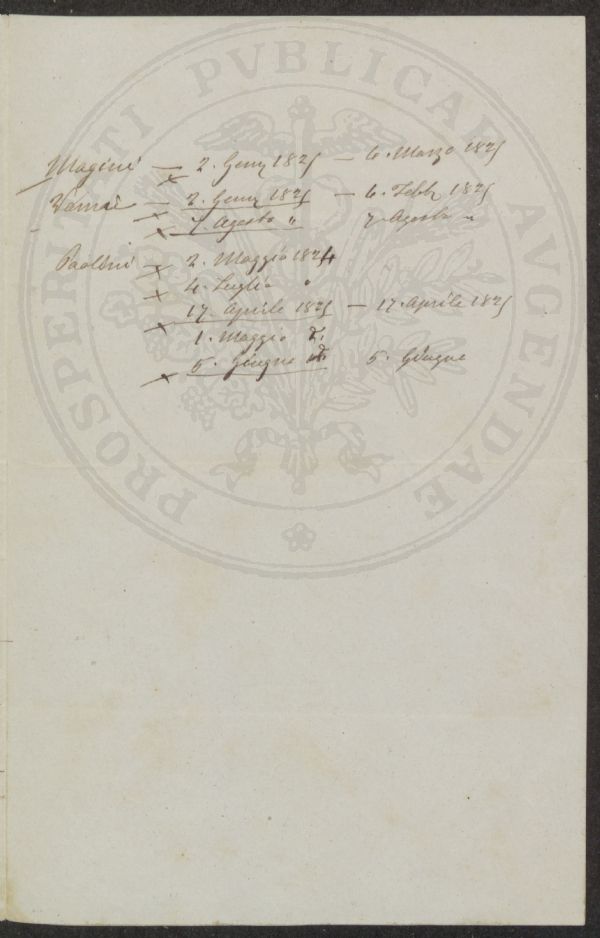 PROSPERITATI PVBLICAE AVGENDAE
Magini — 2. Genn 1825 — 6. Marzo 1825
Vanni — 2. Genn 1825 — 6. Febb 1825
7. Agosto " 7. Agosto "
Paolini 2. Maggio 1824
4. Luglio "
17. Aprile 1825 — 17. Aprile 1825
1. Maggio
5. Giugno 5. Giugno